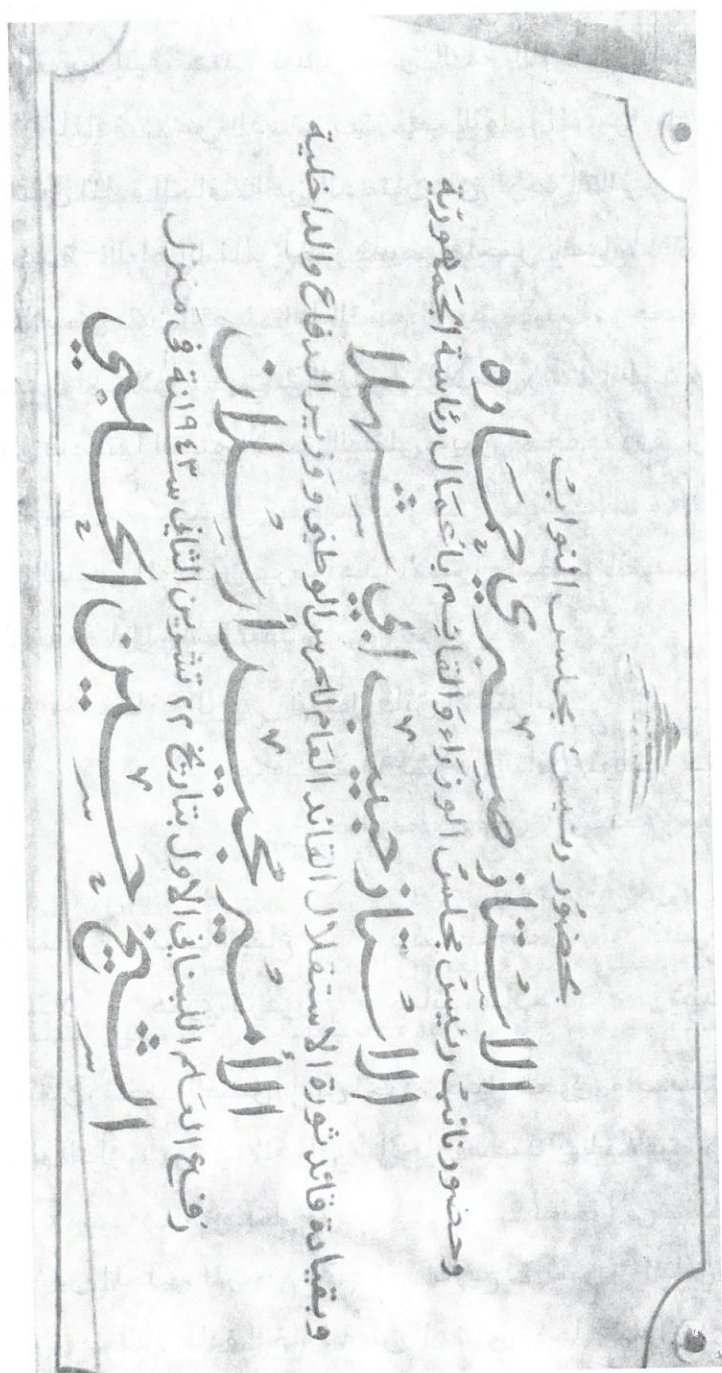 بحضور رئيس مجلس النواب
الاستاذ صبري حماده
وحضور نائب رئيس مجلس الوزراء والقائم باعمال رئاسة الجمهورية
الاستاذ حبيب ابي شهلا
وبقيادة قائد ثورة الاستقلال القائد العام للحرس الوطني ووزير الدفاع والداخلية
الأمير مجيد أرسلان
رفع العلم اللبناني الاول بتاريخ ٢٢ تشرين الثاني سنة ١٩٤٣ في منزل
الشيخ حسين الحلبي